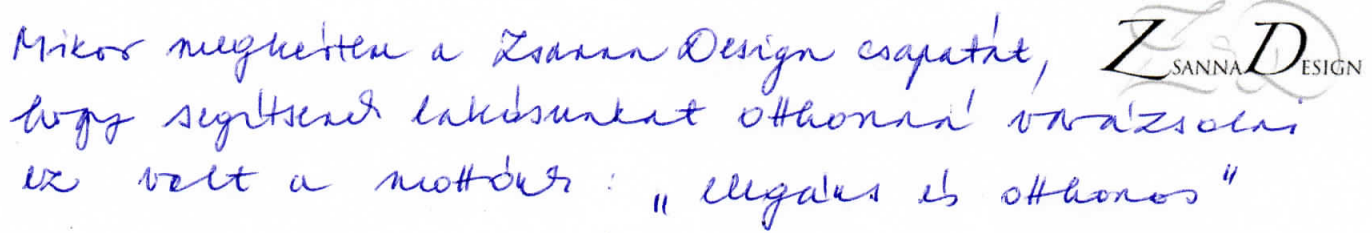 Mikor megkértem a Zsanna Design csapatát,
ZSANNA DESIGN
hogy segítsenek lakásunkat otthonná varázsolni
ez volt a mottónk: „elegáns és otthonos"